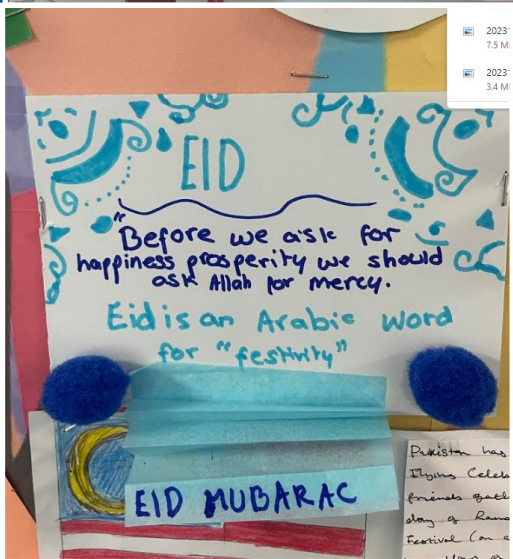 2023
7.5 M
2023
3.4 M
EID
"Before we ask for
happiness prosperity we should
ask Allah for mercy.
Eid is an Arabic word
for "festivity"
EID MUBARAC
Pakistan has
Flying Celeb
friends gath
day of Rama
Festival (an a